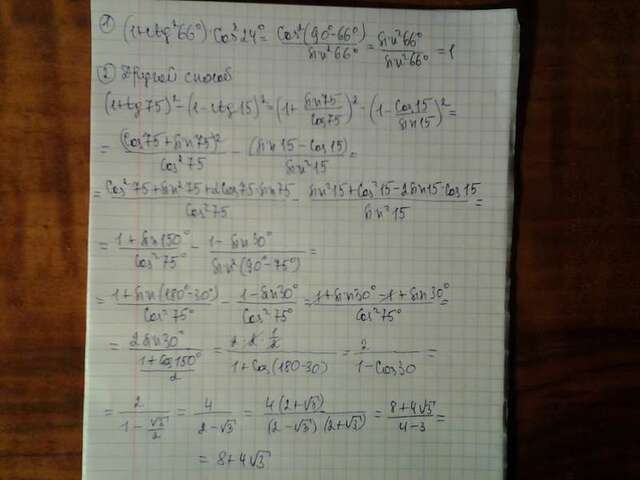 ① (1+ctg²66°)·cos²24° = cos²(90°-66°)/sin²66° = sin²66°/sin²66° = 1
② Другой способ
(1+tg75)² - (1-ctg15)² = (1+ sin75/cos75)² - (1- cos15/sin15)² =
= (cos75+sin75)²/cos²75 - (sin15-cos15)/sin²15 =
= cos²75+sin²75+2cos75·sin75/cos²75 - sin²15+cos²15-2sin15·cos15/sin²15 =
= 1+sin150°/cos²75° - 1-sin30°/sin²(90°-75°) =
= 1+sin(180°-30°)/cos²75° - 1-sin30°/cos²75° = 1+sin30°-1+sin30°/cos²75° =
= 2sin30°/(1+cos150°/2) = 2·2·1/2/1+cos(180-30) = 2/1-cos30 =
= 2/(1-√3/2) = 4/2-√3 = 4(2+√3)/(2-√3)(2+√3) = 8+4√3/4-3 =
= 8+4√3